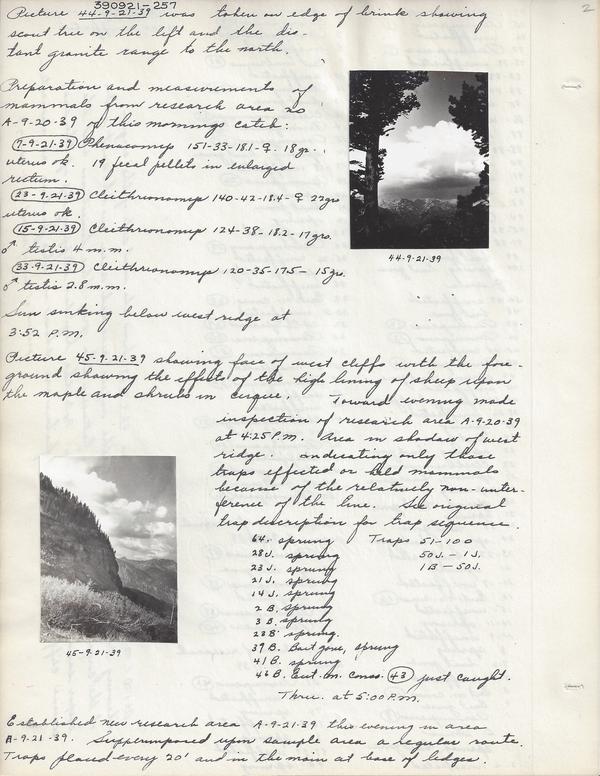 390921-257
2
Picture 44-9-21-39 was taken on edge of brink showing
scout tree on the left and the dis-
tant granite range to the north.
Preparation and measurements of
mammals from research area 20
A-9-20-39 of this mornings catch:
7-9-21-39 Phenacomys 151-33-18.1-♀. 18gr.
uterus ok. 19 fecal pellets in enlarged
rectum.
23-9-21-39 Cleithrionomys 140-42-18.4-♀ 22grs
uterus ok.
15-9-21-39 Cleithrionomys 124-38-18.2-17grs.
♂ testis 4 m.m.
33-9-21-39 Cleithrionomys 120-35-17.5- 15grs.
♂ testis 2.8 m.m.
44-9-21-39
Sun sinking below west ridge at
3:52 P.M.
Picture 45-9-21-39 showing face of west cliffs with the fore-
ground showing the effects of the high lining of sheep upon
the maple and shrubs in cirque. Toward evening made
inspection of research area A-9-20-39
at 4:25 P.M. Area in shadow of west
ridge. Indicating only those
traps effected or held mammals
because of the relatively non-inter-
ference of the line. See original
trap description for trap sequence.
64. sprung Traps 51-100
28J. sprung 50J. - 1J.
23J. sprung 1B - 50J.
21J. sprung
14J. sprung
2B. sprung
3B. sprung
28B. sprung.
39B. Bait gone, sprung
41B. sprung
46B. Eut. m. Cons. 43 just caught.
Thru. at 5:00 P.M.
45-9-21-39
Established new research area A-9-21-39 this evening in area
A-9-21-39. Supperimposed upon sample area a regular route.
Traps placed every 20' and in the main at base of ledges.